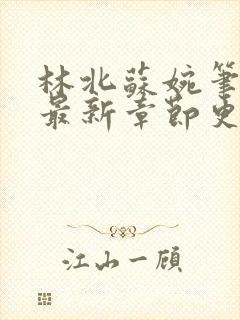 林北蘇婉筆
最新章節史
江山一顾